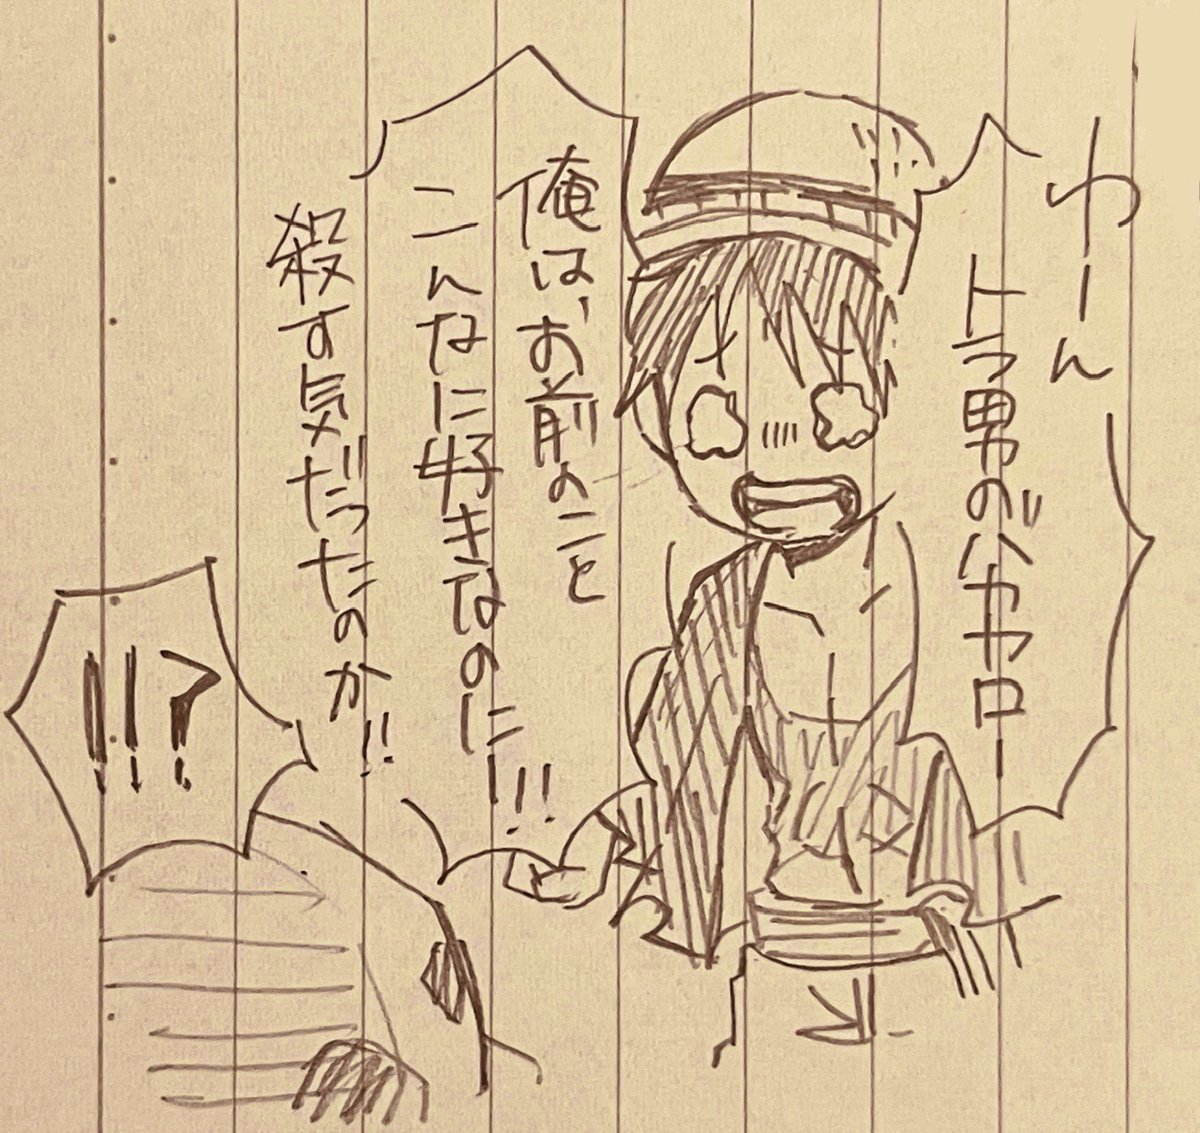 わーん
トラ男のバカヤロー
俺は、お前のこと
こんなに好きなのに!!!
殺す気だったのか!!
!!?